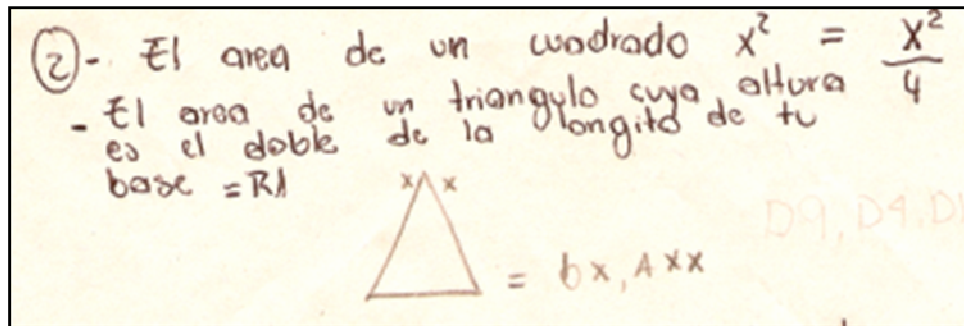 ②- El area de un cuadrado x² = x²/4
- El area de un triangulo cuya altura
es el doble de la longitd de tu
base = RA
x x
= bx, A xx
D9, D4, D1